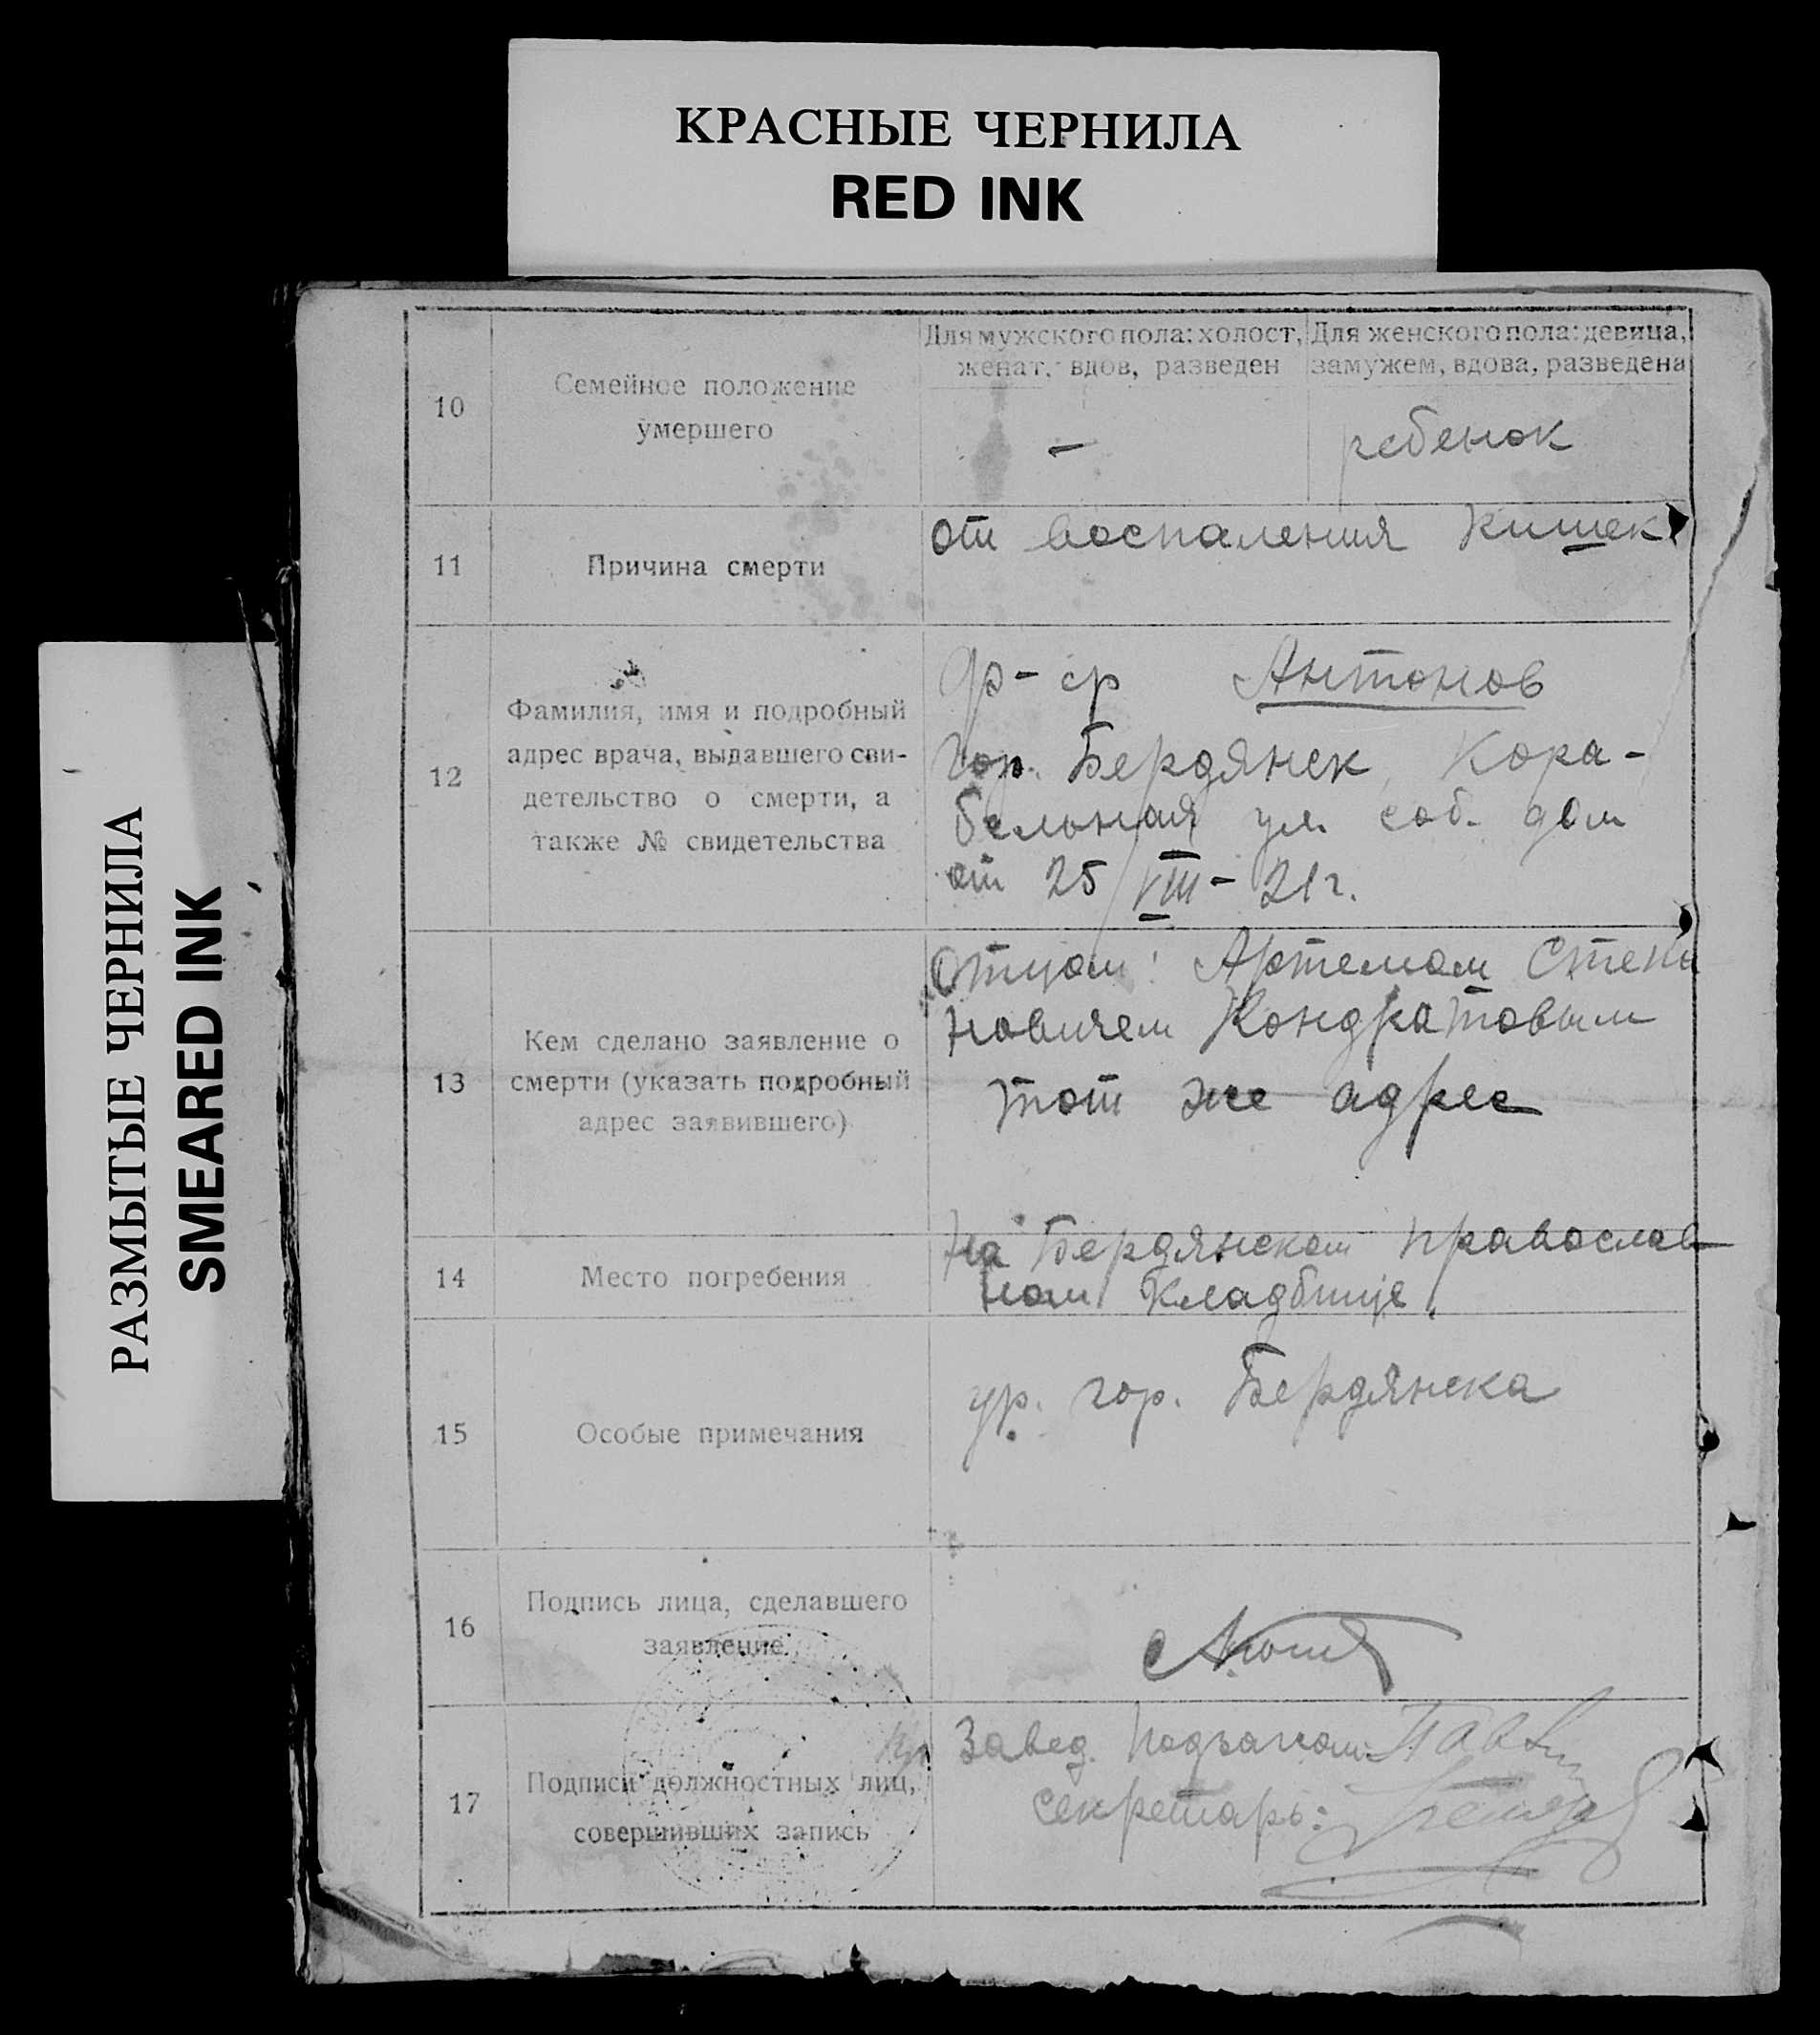 КРАСНЫЕ ЧЕРНИЛА
RED INK
РАЗМЫТЫЕ ЧЕРНИЛА
SMEARED INK
10
Семейное положение
умершего
Для мужского пола: холост,
женат, вдов, разведен
—
Для женского пола: девица,
замужем, вдова, разведена
ребенок
11
Причина смерти
от воспаления кишек
12
Фамилия, имя и подробный
адрес врача, выдавшего сви-
детельство о смерти, а
также № свидетельства
Антонов
гор. Бердянск Кора-
бельная ул. соб. дом
от 25 VIII - 21 г.
13
Кем сделано заявление о
смерти (указать подробный
адрес заявившего)
отцом: Артемом Степа
новичем Кондратовым
тот же адрес
14
Место погребения
на Бердянском православ
ном кладбище.
15
Особые примечания
ур. гор. Бердянска
16
Подпись лица, сделавшего
заявление
17
Подписи должностных лиц,
совершивших запись
Завед.
секретарь: